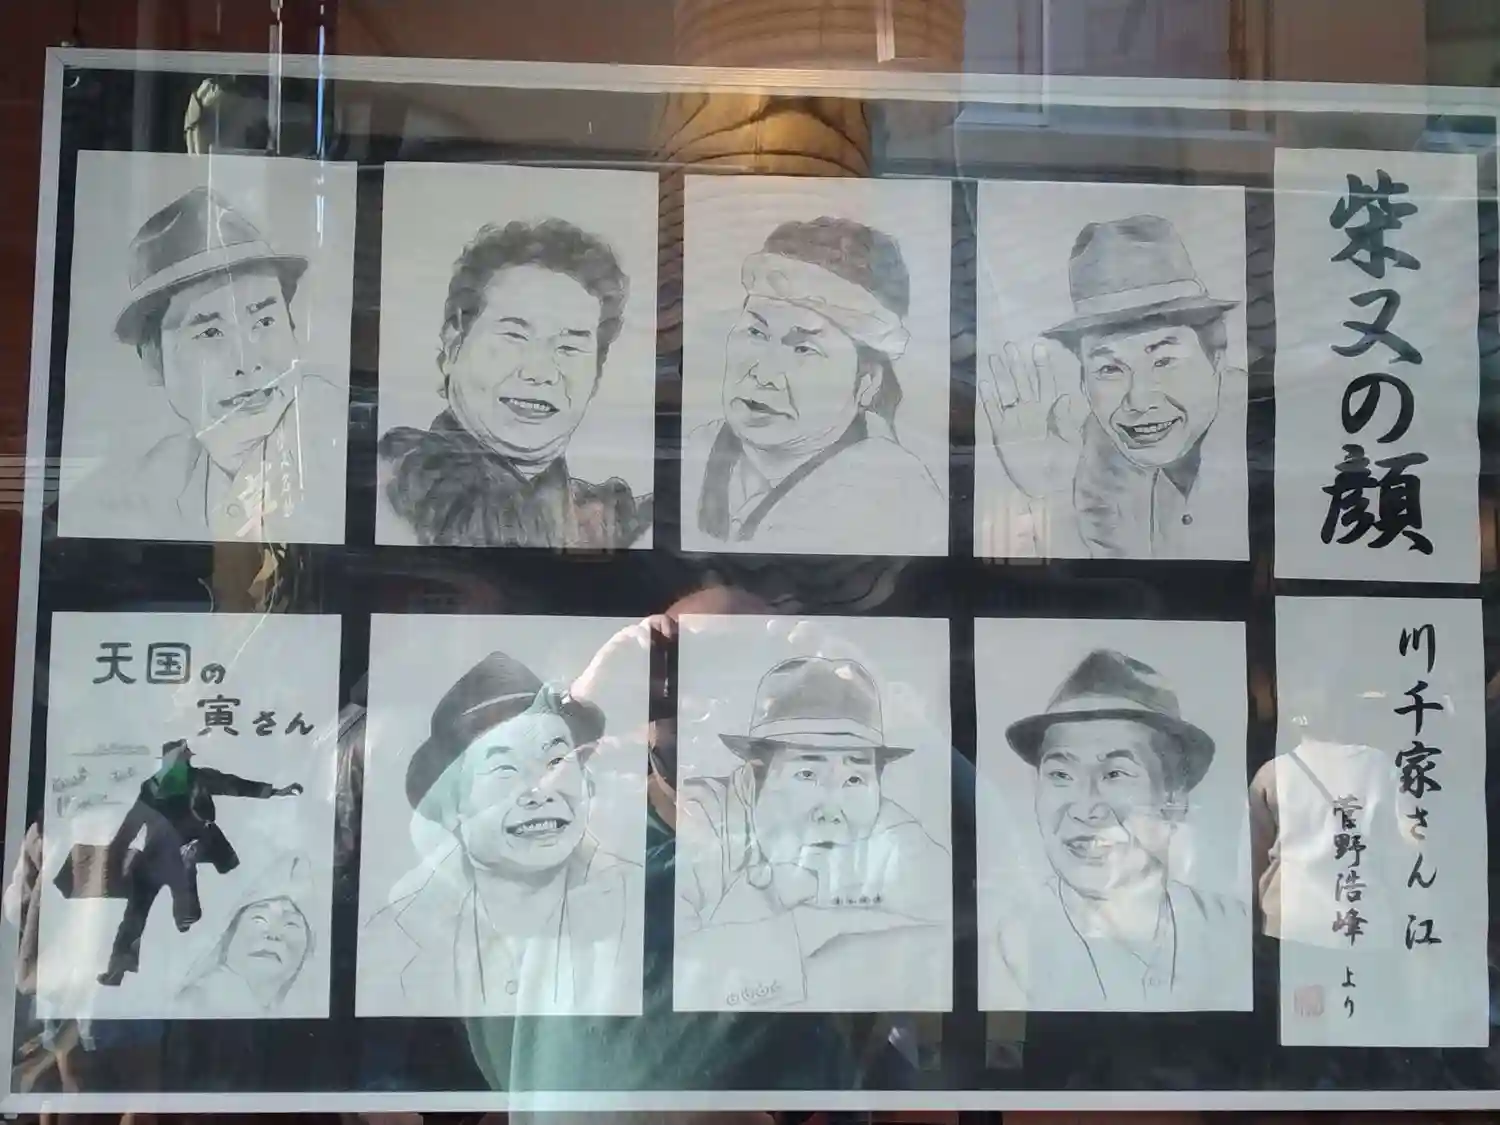 柴又の顔
天国の
寅さん
川千家さん江
菅野浩峰 より